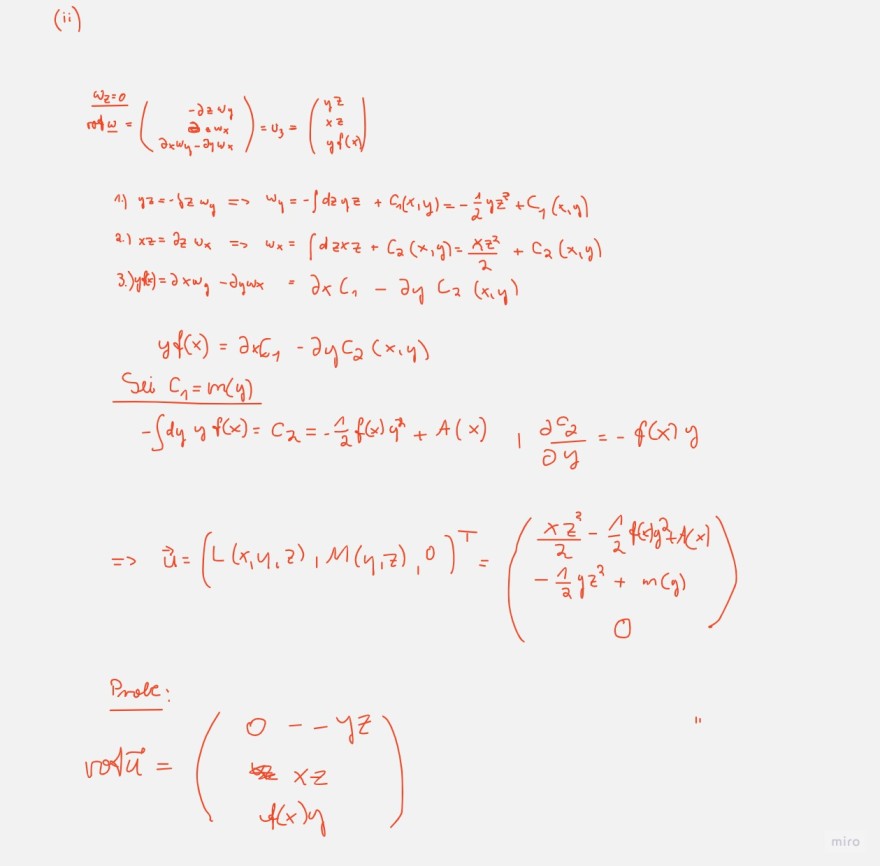 (ii)
w_z=0
rot w = ( -∂z w_y ; ∂z w_x ; ∂x w_y - ∂y w_x ) = v_3 = ( yz ; xz ; y f(x) )
1.) yz = -∂z w_y => w_y = -∫dz yz + C_1(x,y) = -1/2 yz² + C_1(x,y)
2.) xz = ∂z w_x => w_x = ∫dz xz + C_2(x,y) = xz²/2 + C_2(x,y)
3.) yf(x) = ∂x w_y - ∂y w_x = ∂x C_1 - ∂y C_2(x,y)
y f(x) = ∂x C_1 - ∂y C_2(x,y)
Sei C_1 = m(y)
-∫dy y f(x) = C_2 = -1/2 f(x) y² + A(x) , ∂C_2/∂y = -f(x) y
=> u⃗ = (L(x,y,z), M(y,z), 0)^T = ( xz²/2 - 1/2 f(x)y² + A(x) ; -1/2 yz² + m(y) ; 0 )
Probe:
rot u⃗ = ( 0 - - yz ; xz ; f(x)y )
"
miro